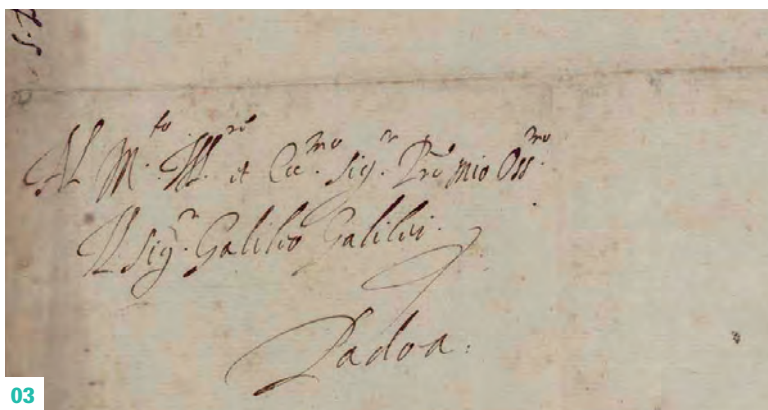 Al M.to Ill.re et Ecc.mo Sig.r P.rõn mio Oss.mo
Il Sig.r Galileo Galilei.
Padoa.
03